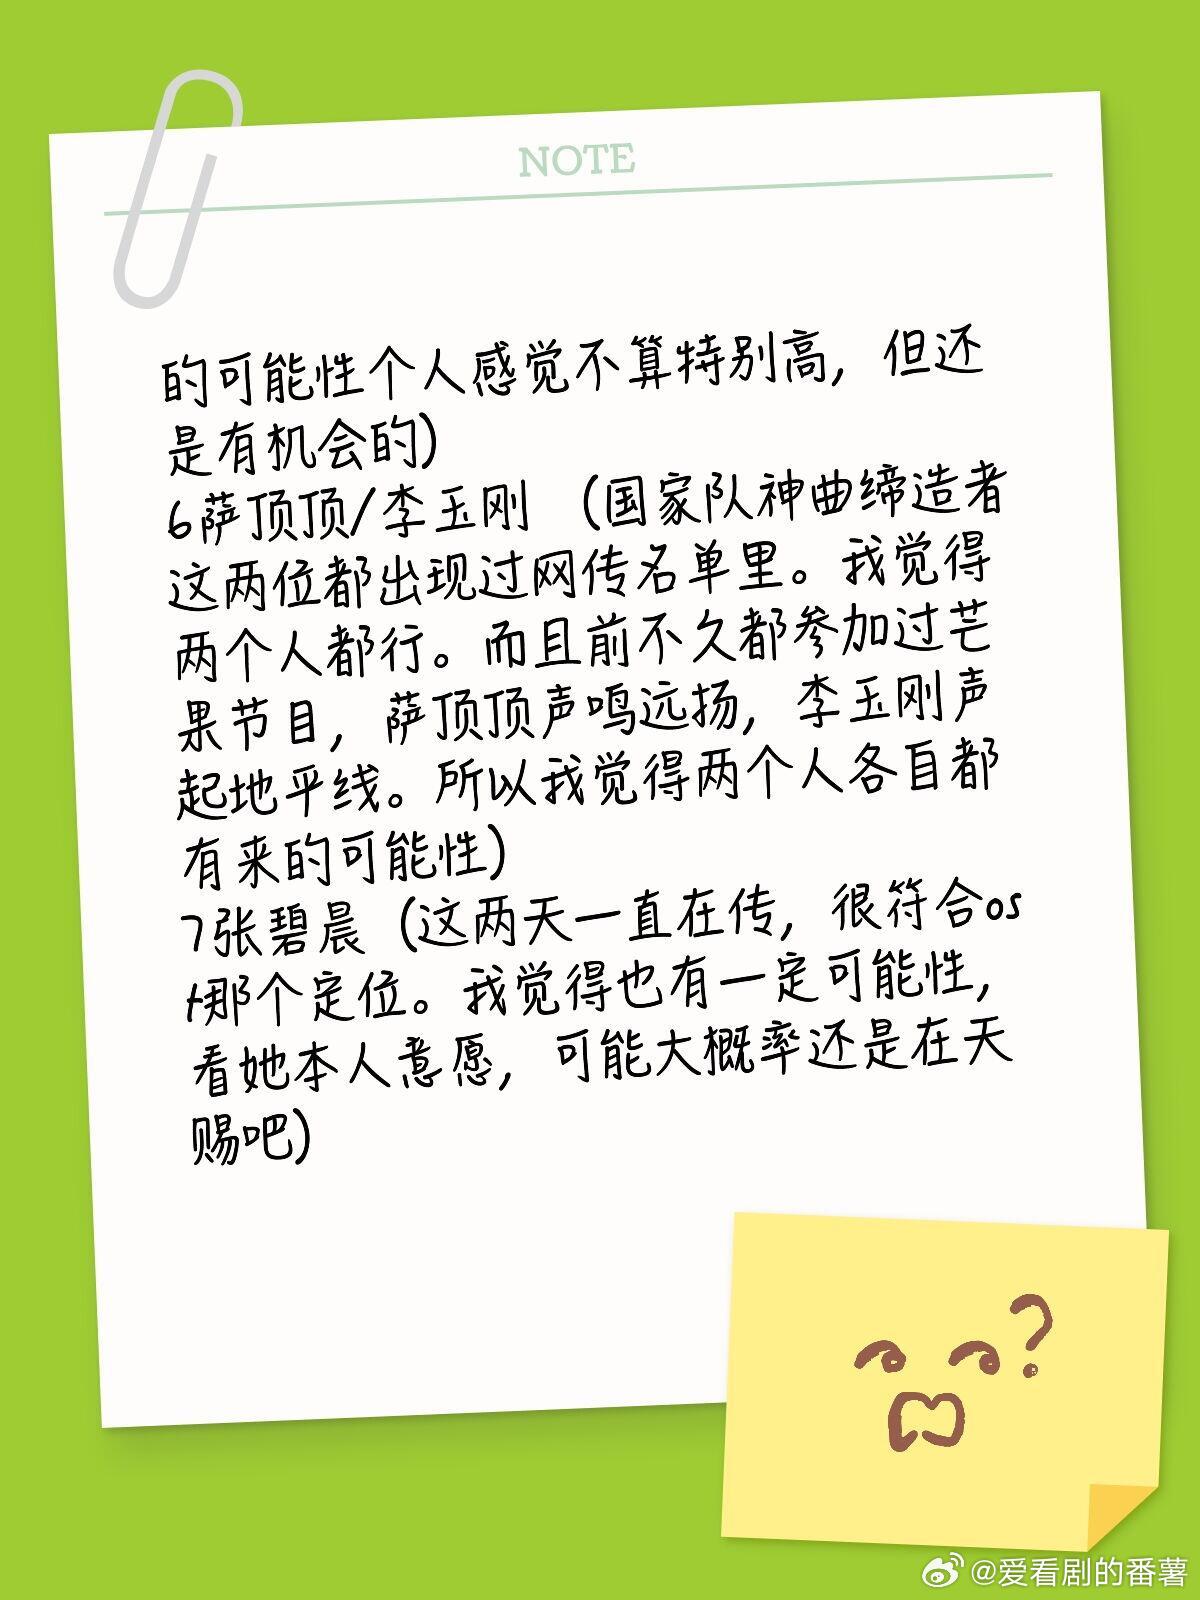 NOTE
的可能性个人感觉不算特别高，但还
是有机会的）
6萨顶顶/李玉刚 （国家队神曲缔造者
这两位都出现过网传名单里。我觉得
两个人都行。而且前不久都参加过芒
果节目，萨顶顶声鸣远扬，李玉刚声
起地平线。所以我觉得两个人各自都
有来的可能性）
7张碧晨（这两天一直在传，很符合os
t那个定位。我觉得也有一定可能性，
看她本人意愿，可能大概率还是在天
赐吧）
?
@爱看剧的番薯